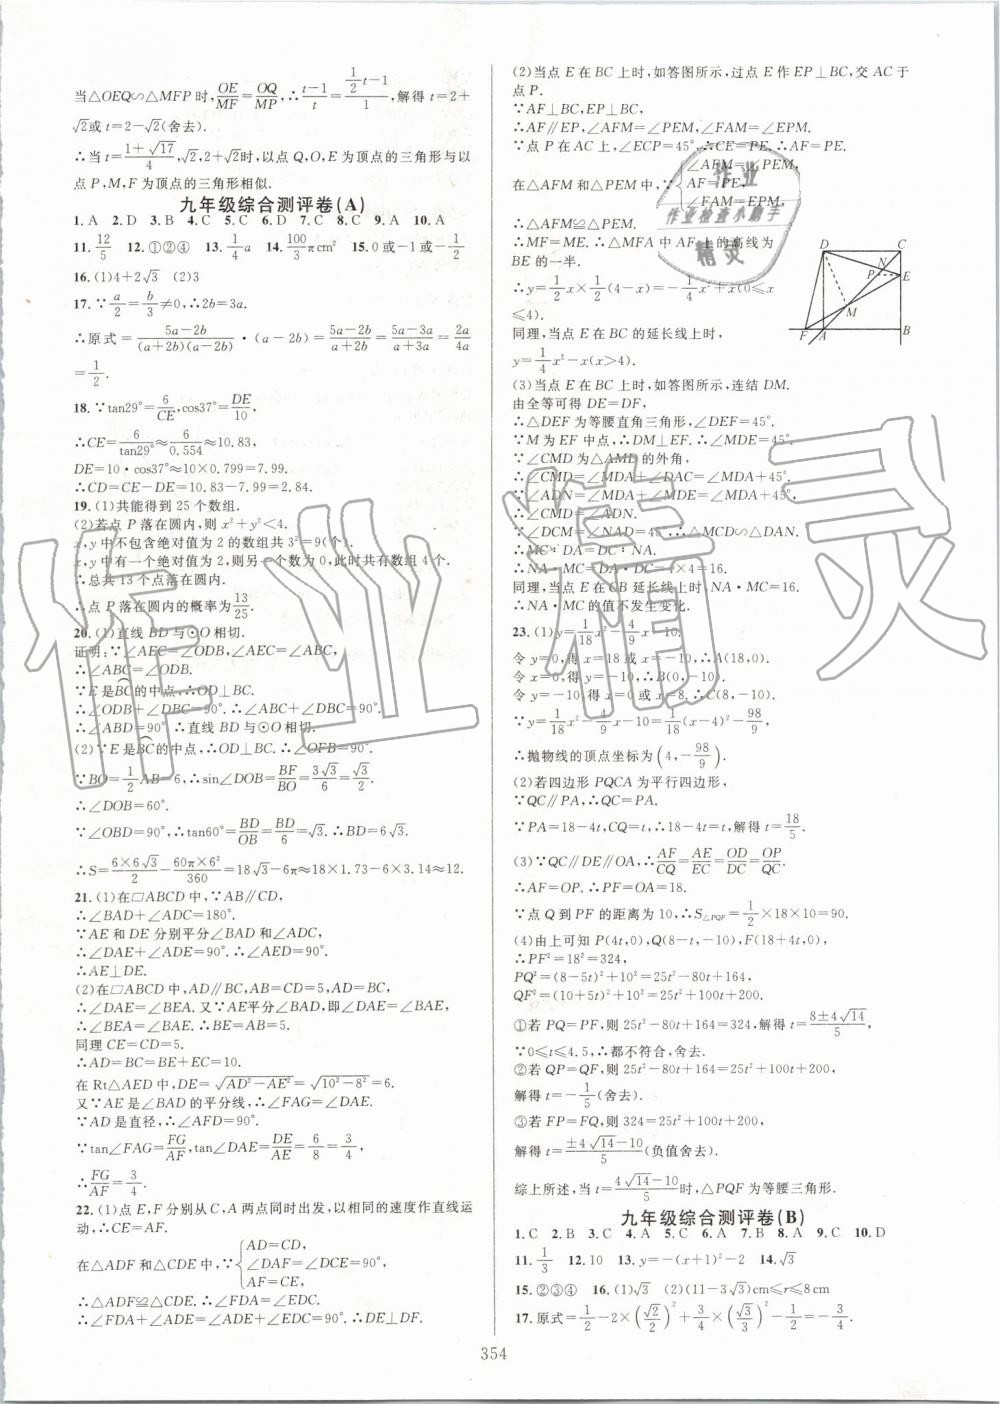 当△OEQ∽△MFP时,OE/MF=OQ/MP,∴(t-1)/t=(1/2 t-1)/1,解得t=2+
√2或t=2-√2(舍去).
∴当t=(1+√17)/4,√2,2+√2时,以点Q,O,E为顶点的三角形与以
点P,M,F为顶点的三角形相似.
九年级综合测评卷(A)
1. A 2. D 3. B 4. C 5. C 6. D 7. C 8. C 9. A 10. A
11. 12/5 12. ①②④ 13. 1/4 a 14. 100/3 π cm² 15. 0或-1或-1/2
16. (1)4+2√3 (2)3
17. ∵a/2=b/3≠0,∴2b=3a.
∴原式=(5a-2b)/((a+2b)(a-2b))·(a-2b)=(5a-2b)/(a+2b)=(5a-3a)/(a+3a)=2a/4a
=1/2.
18. ∵tan29°=6/CE,cos37°=DE/10,
∴CE=6/tan29°≈6/0.554≈10.83,
DE=10·cos37°≈10×0.799=7.99.
∴CD=CE-DE=10.83-7.99=2.84.
19. (1)共能得到25个数组.
(2)若点P落在圆内,则x²+y²<4.
x,y中不包含绝对值为2的数组共3²=9(个).
x,y中有一个绝对值为2,则另一个数为0,此时共有数组4个.
∴总共13个点落在圆内.
∴点P落在圆内的概率为13/25.
20. (1)直线BD与⊙O相切.
证明:∵∠AEC=∠ODB,∠AEC=∠ABC,
∴∠ABC=∠ODB.
∵E是BC的中点,∴OD⊥BC.
∴∠ODB+∠DBC=90°.∴∠ABC+∠DBC=90°.
∴∠ABD=90°.∴直线BD与⊙O相切.
(2)∵E是BC的中点,∴OD⊥BC.∴∠OFB=90°.
∵BO=1/2 AB=6,∴sin∠DOB=BF/BO=3√3/6=√3/2.
∴∠DOB=60°.
∵∠OBD=90°,∴tan60°=BD/OB=BD/6=√3.∴BD=6√3.
∴S=6×6√3/2-60π×6²/360=18√3-6π≈18×1.73-6×3.14≈12.
21. (1)在▱ABCD中,∵AB∥CD,
∴∠BAD+∠ADC=180°.
∵AE和DE分别平分∠BAD和∠ADC,
∴∠DAE+∠ADE=90°.∴∠AED=90°.
∴AE⊥DE.
(2)在▱ABCD中,AD∥BC,AB=CD=5,AD=BC,
∴∠DAE=∠BEA.又∵AE平分∠BAD,即∠DAE=∠BAE,
∴∠BEA=∠BAE.∴BE=AB=5.
同理CE=CD=5.
∴AD=BC=BE+EC=10.
在Rt△AED中,DE=√(AD²-AE²)=√(10²-8²)=6.
又∵AE是∠BAD的平分线,∴∠FAG=∠DAE.
∵AD是直径,∴∠AFD=90°.
∴tan∠FAG=FG/AF,tan∠DAE=DE/AE=6/8=3/4,
∴FG/AF=3/4.
22. (1)点E,F分别从C,A两点同时出发,以相同的速度作直线运
动,∴CE=AF.
在△ADF和△CDE中,∵{AD=CD, ∠DAF=∠DCE=90°, AF=CE,
∴△ADF≌△CDE.∴∠FDA=∠EDC.
∴∠ADE+∠FDA=∠ADE+∠EDC=90°.∴DE⊥DF.
(2)当点E在BC上时,如答图所示,过点E作EP⊥BC,交AC于
点P.
∵AF⊥BC,EP⊥BC.
∴AF∥EP,∠AFM=∠PEM,∠FAM=∠EPM.
∵点P在AC上,∠ECP=45°,∴CE=PE.∴AF=PE.
在△AFM和△PEM中,∵{∠AFM=∠PEM, AF=PE, ∠FAM=∠EPM,
∴△AFM≌△PEM.
∴MF=ME.∴△MFA中AF上的高线为
BE的一半.
∴y=1/2 x×1/2(4-x)=-1/4 x²+x(0≤x
≤4).
同理,当点E在BC的延长线上时,
y=1/4 x²-x(x>4).
D C N P E M F A B
(3)当点E在BC上时,如答图所示,连结DM.
由全等可得DE=DF,
∴△DEF为等腰直角三角形,∠DEF=45°.
∵M为EF中点,∴DM⊥EF.∴∠MDE=45°.
∵∠CMD为△AMD的外角,
∴∠CMD=∠MDA+∠DAC=∠MDA+45°.
∵∠ADN=∠MDA+∠MDE=∠MDA+45°,
∴∠CMD=∠ADN.
∵∠DCM=∠NAD=45°,∴△MCD∽△DAN.
∴MC∶DA=DC∶NA.
∴NA·MC=DA·DC=4×4=16.
同理,当点E在CB延长线上时,NA·MC=16.
∴NA·MC的值不发生变化.
23. (1)y=1/18 x²-4/9 x-10.
令y=0,得x=18或x=-10,∴A(18,0).
令x=0,得y=-10,∴B(0,-10).
令y=-10,得x=0或x=8,∴C(8,-10).
∵y=1/18 x²-4/9 x-10=1/18(x-4)²-98/9,
∴抛物线的顶点坐标为(4,-98/9).
(2)若四边形PQCA为平行四边形,
∵QC∥PA,∴QC=PA.
∵PA=18-4t,CQ=t,∴18-4t=t,解得t=18/5.
(3)∵QC∥DE∥OA,∴AF/CQ=AE/EC=OD/DC=OP/QC.
∴AF=OP.∴PF=OA=18.
∵点Q到PF的距离为10,∴S△PQF=1/2×18×10=90.
(4)由上可知P(4t,0),Q(8-t,-10),F(18+4t,0).
∴PF²=18²=324,
PQ²=(8-5t)²+10²=25t²-80t+164,
QF²=(10+5t)²+10²=25t²+100t+200.
①若PQ=PF,则25t²-80t+164=324,解得t=(8±4√14)/5,
∵0≤t≤4.5,∴都不符合,舍去.
②若QP=QF,则25t²-80t+164=25t²+100t+200,
解得t=-1/5(舍去).
③若FP=FQ,则324=25t²+100t+200,
解得t=(±4√14-10)/5(负值舍去).
综上所述,当t=(4√14-10)/5时,△PQF为等腰三角形.
九年级综合测评卷(B)
1. C 2. B 3. C 4. A 5. C 6. A 7. B 8. A 9. C 10. D
11. 1/3 12. 10 13. y=-(x+1)²-2 14. √3
15. ②③④ 16. (1)√3 (2)(11-3√3)cm≤r≤8cm
17. 原式=1/2-2×(√2/2)²+3/4×(√3/3)²=1/2-1+1/4=-1/4.
354
作业
作业检查小助手
精灵
作业精灵